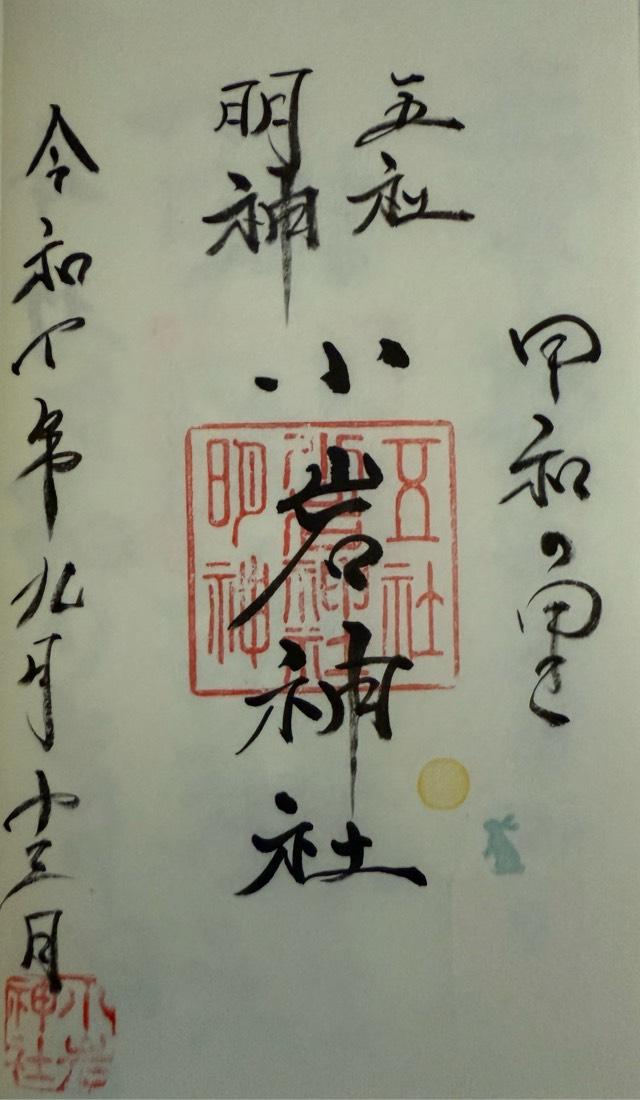 甲和の里
五社
明神
小岩神社
令和年九月十三日
五社
小岩神社
明神
小岩
神社